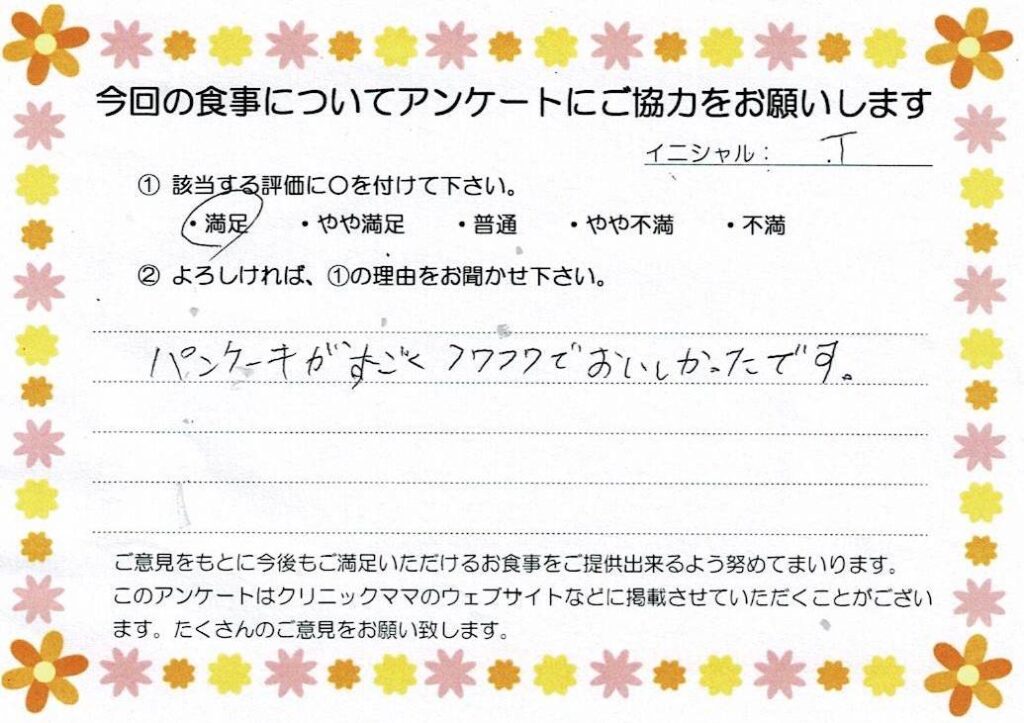 今回の食事についてアンケートにご協力をお願いします
イニシャル： .T
① 該当する評価に〇を付けて下さい。
・満足 ・やや満足 ・普通 ・やや不満 ・不満
② よろしければ、①の理由をお聞かせ下さい。
パンケーキがすごくフワフワでおいしかったです。
ご意見をもとに今後もご満足いただけるお食事をご提供出来るよう努めてまいります。
このアンケートはクリニックママのウェブサイトなどに掲載させていただくことがござい
ます。たくさんのご意見をお願い致します。